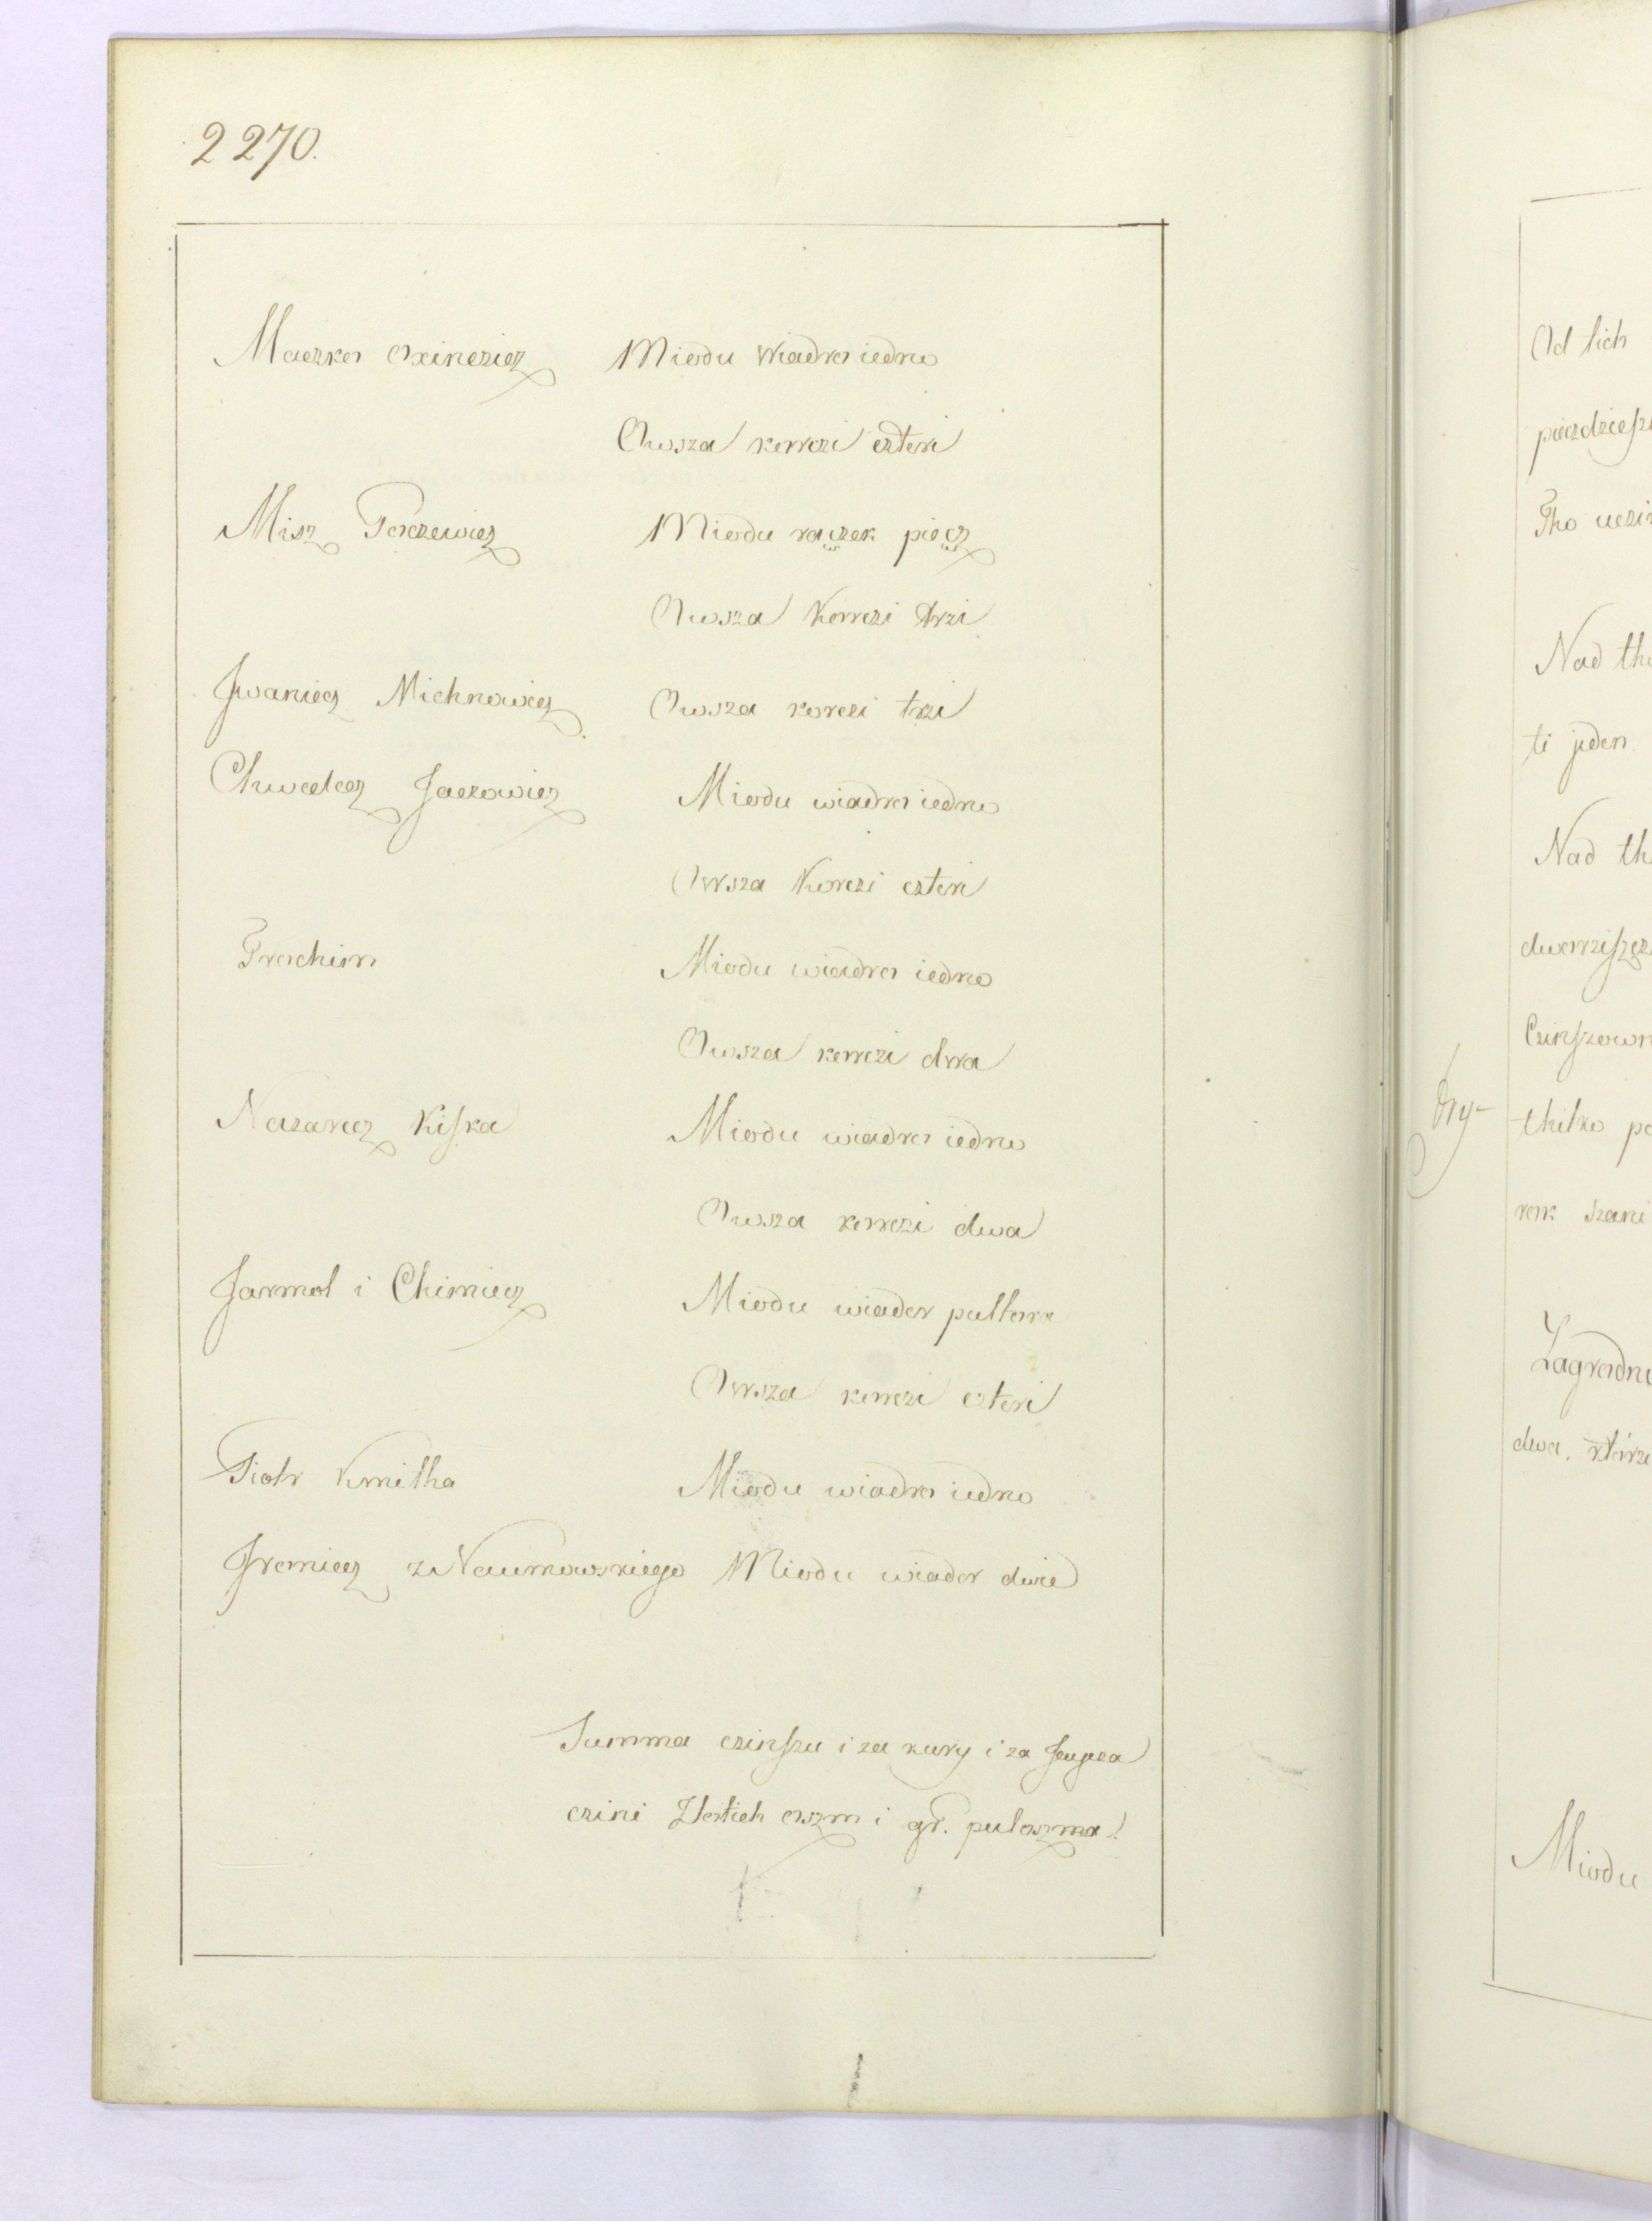 2270.
Maczko Oxinczicz Miodu wiadro iedno
Owsza korczi czteri
Misz Perczewicz Miodu raczek piecz
Owsza korczi trzi
Iwaniecz Michnowicz Owsza korczi trzi
Chwalecz Jaczowicz Miodu wiadro iedno
Owsza korczi czteri
Prochim Miodu wiadro iedno
Owsza korczi dwa
Nazarecz Kiska Miodu wiadro iedno
Owsza korczi dwa
Jarmol i Chimiecz Miodu wiader pultora
Owsza korczi czteri
Piotr Kmitha Miodu wiadro iedno
Iremiecz z Naumowskiego Miodu wiader dwie
Summa czinszu i za kury i za
czini Zlotich oszm i gr. puloszma
Od tich
Tho uczi
Nad th
ti jeden.
Nad th
Czinszown
thilko po
rok szani
Zagrodni
dwa, którze
Miodu